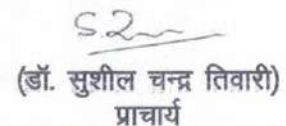 (डॉ. सुशील चन्द्र तिवारी)
प्राचार्य